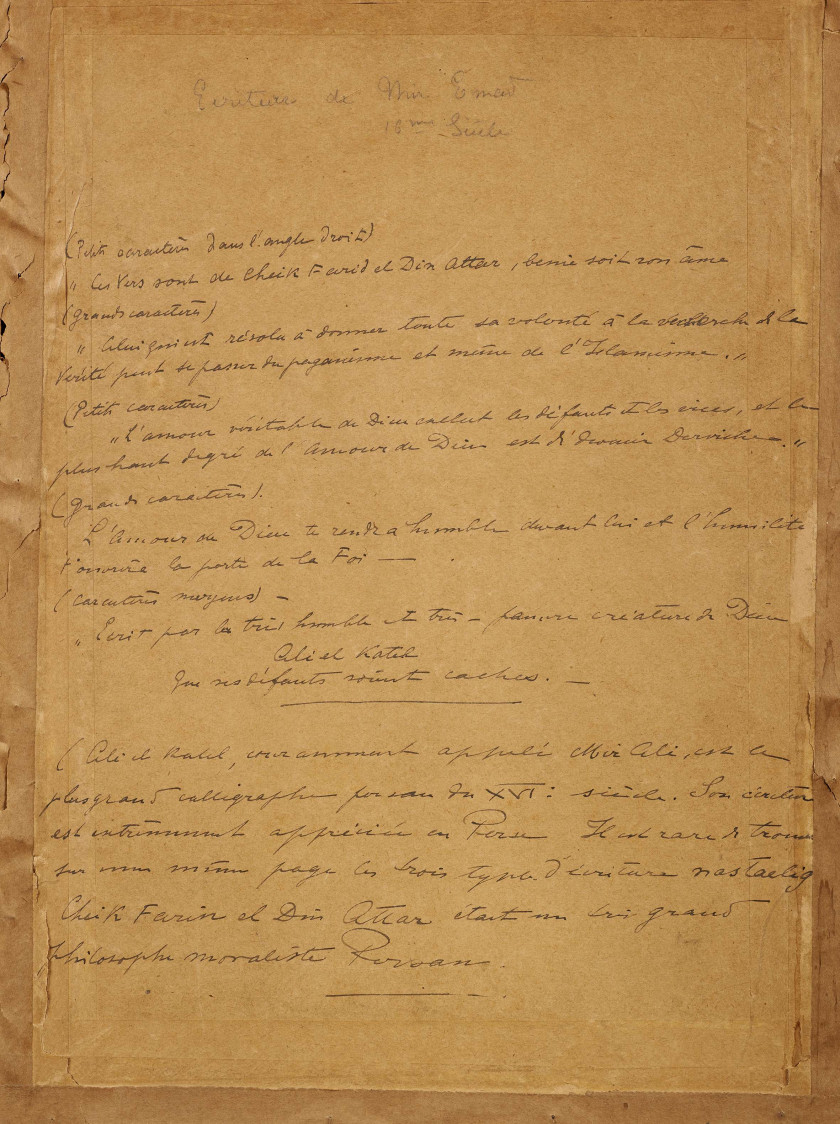 Ecriture de Mir Emad
16me Siècle
(Petits caractères dans l'angle droit)
„ Ces Vers sont de Cheik Farid el Din Attar, bénie soit son âme
(grands caractères)
„ Celui qui est résolu à donner toute sa volonté à la recherche de la
Vérité peut se passer du paganisme et même de l'Islamisme. „
(Petits caractères)
„ L'amour véritable de Dieu les défauts et les vices, et le
plus haut degré de l'Amour de Dieu est de devenir Derviche. „
(grands caractères).
L'Amour de Dieu te rendra humble devant lui et l'humilité
t'ouvrira la porte de la Foi —
(caractères moyens) —
„ Ecrit par le très humble et très-pauvre créature de Dieu
Ali el Kateb
Que ses défauts soient cachés. —
( Ali el Kateb, couramment appelé Mir Ali, est le
plus grand calligraphe persan du XVI: siècle. Son écriture
est extrêmement appréciée en Perse Il est rare de trouver
sur une même page les trois types d'écriture nastaelig
Cheik Farin el Din Attar était un très grand
philosophe moraliste Persan.